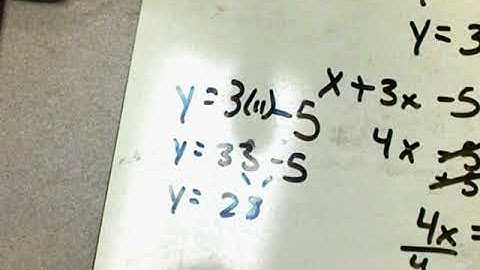 y = 3
y = 3(11) - 5
x + 3x - 5
y = 33 - 5
4x - 5
+ 5
y = 28
4x =
4